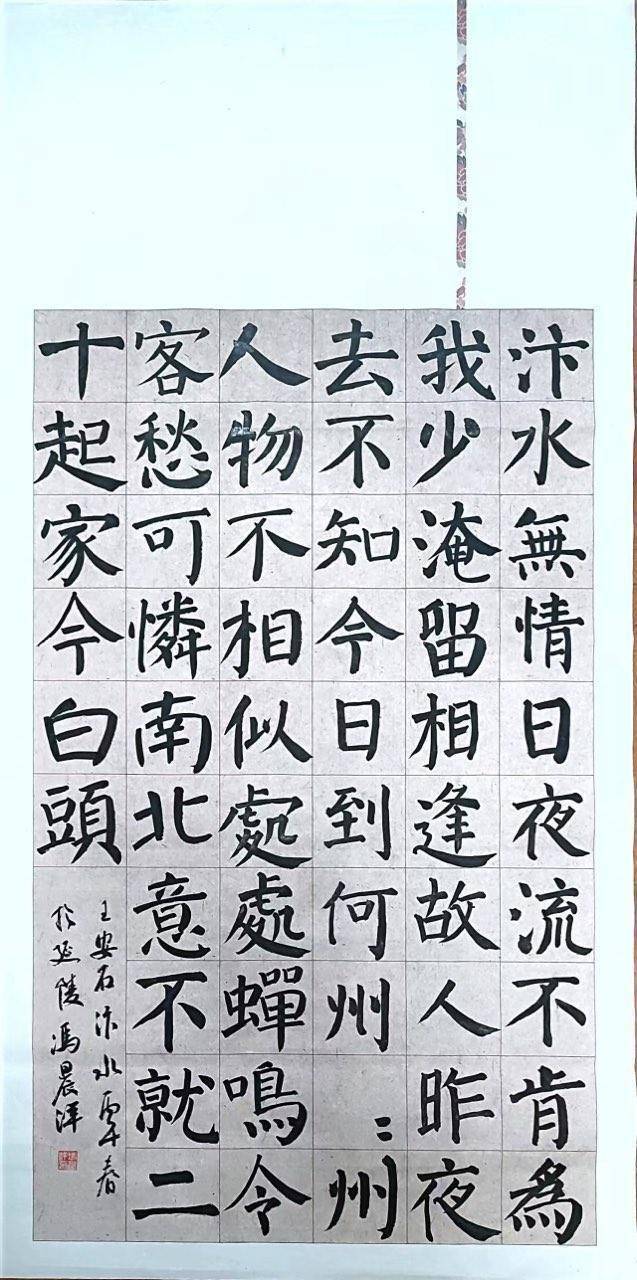 汴水無情日夜流不肯為
我少淹留相逢故人昨夜
去不知今日到何州〻州
人物不相似處處蟬鳴令
客愁可憐南北意不就二
十起家今白頭
王安石汴水 春
於延陵馮晨洋